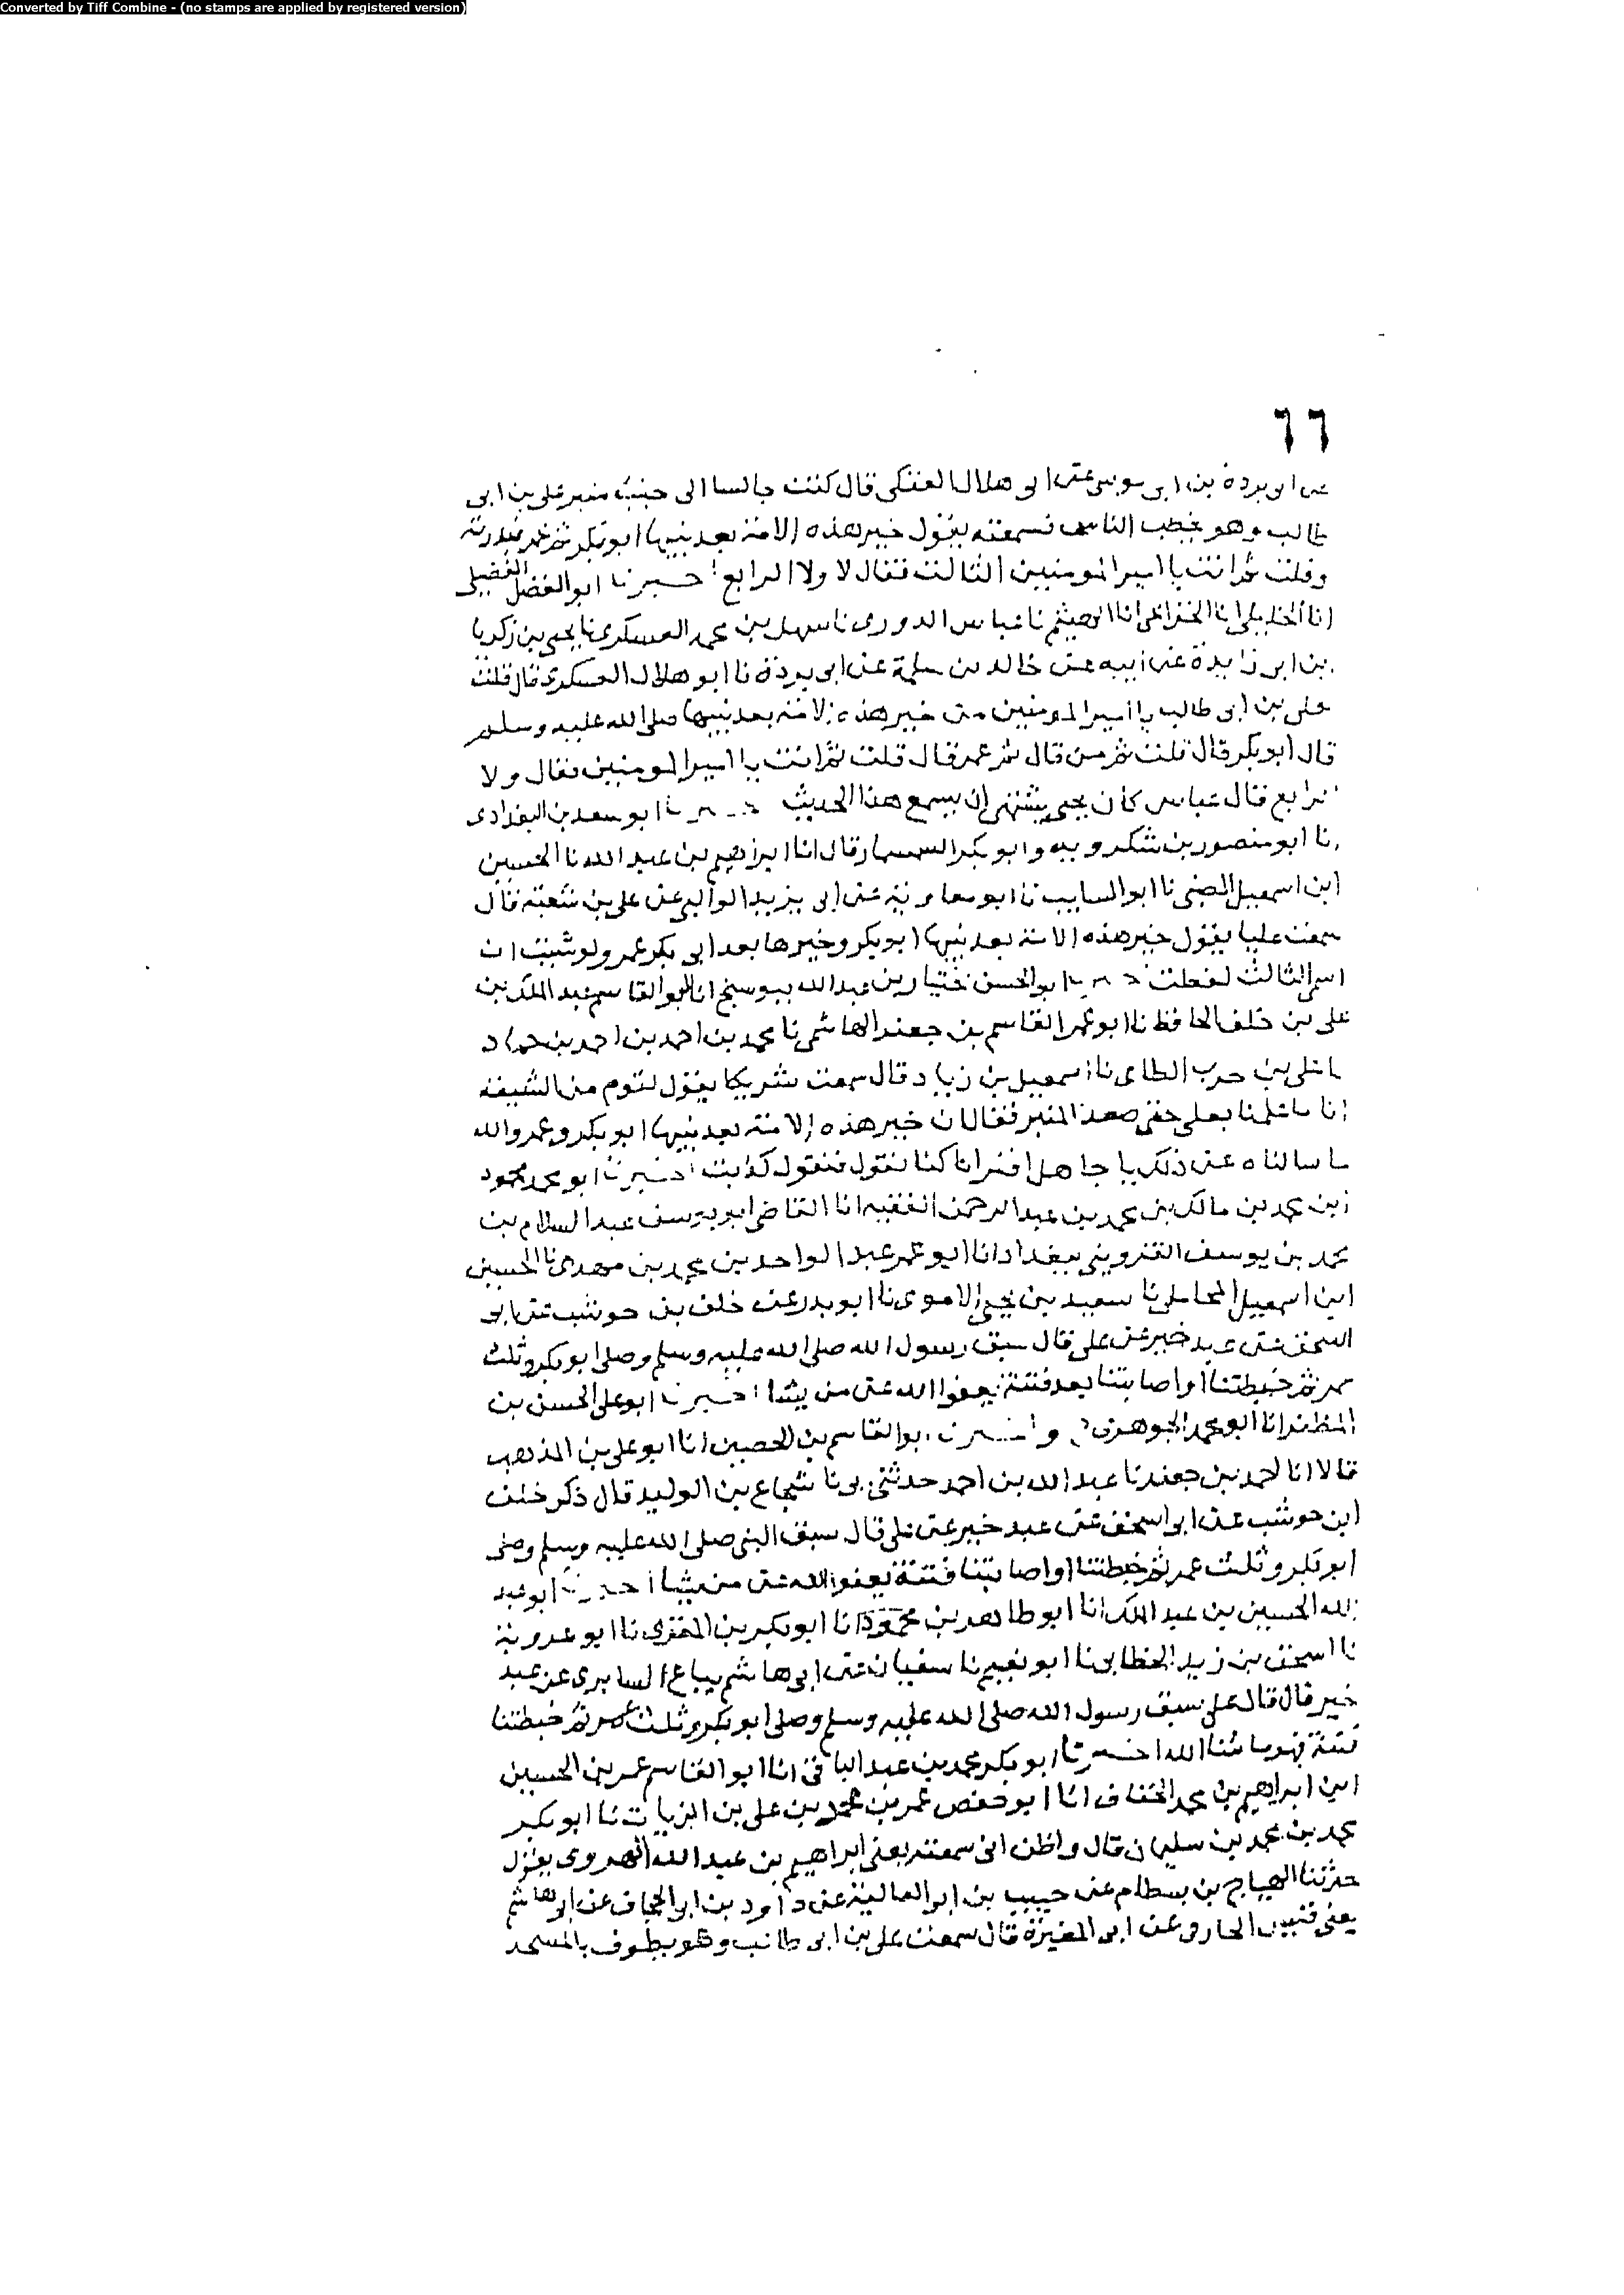 Converted by Tiff Combine - (no stamps are applied by registered version)
٦٦
عن ابى بردة بن ابى موسى عن ابى هلال العتكى قال كنت جالسا الى جنب منبر على بن ابى
طالب وهو يخطب الناس فسمعته يقول خير هذه الامة بعد نبيها ابو بكر ثم عمر فبدرته
وقلت ثم انت يا امير المومنين الثالث فقال لا ولا الرابع اخبرنا ابو الفضل الفضيلى
انا الخليلى انا الخزاعى انا الهيثم نا عباس الدورى نا سهل بن محمد العسكرى نا يحيى بن زكريا
بن ابى زايدة عن ابيه عن خالد بن سلمة عن ابى بردة نا ابو هلال العسكرى قال قلت
على بن ابى طالب يا امير المومنين من خير هذه الامة بعد نبيها صلى الله عليه وسلم
قال ابو بكر قال قلت ثم من قال ثم عمر قال قلت ثم انت يا امير المومنين فقال ولا
الرابع قال عباس كان يحيى يشتهى ان يسمع هذا الحديث اخبرنا ابو سعد بن البغدادى
انا ابو منصور بن شكرويه وابو بكر السمسار قال انا ابراهيم بن عبد الله نا الحسين
ابن اسمعيل الضبى نا ابو السايب نا ابو معاوية عن ابى يزيد الوالبى عن على بن شعبة قال
سمعت عليا يقول خير هذه الامة بعد نبيها ابو بكر وخيرها بعد ابى بكر عمر ولو شيت ان
اسمى الثالث لفعلت اخبرنا ابو الحسن بختيار بن عبد الله ببوسنج انا ابو القاسم عبد الملك بن
على بن خلف الحافظ نا ابو عمر القاسم بن جعفر الهاشمى نا محمد بن احمد بن احمد بن حماد
نا على بن حرب الطاى نا اسمعيل بن زياد قال سمعت شريكا يقول لقوم من الشيعة
انا ما علمنا بعلى حتى صعد المنبر فقال ان خير هذه الامة بعد نبيها ابو بكر وعمر والله
ما سالناه عن ذلك يا جاهل افترانا كنا نقوم فنقول كذبت اخبرنا ابو محمد محمود
بن محمد بن مالك بن محمد بن عبد الرحمن الفقيه انا القاضى ابو يوسف عبد السلام بن
محمد بن يوسف القزوينى ببغداد انا ابو عمر عبد الواحد بن محمد بن مهدى نا الحسين
ابن اسمعيل المحاملى نا سعيد بن يحيى الاموى نا ابو بدر عن خلف بن حوشب عن ابى
اسحق عن عبد خير عن على قال سبق رسول الله صلى الله عليه وسلم وصلى ابو بكر وثلث
عمر ثم خبطتنا او اصابتنا بعد فتنة يعفوا الله عن من يشا اخبرنا ابو على الحسن بن
المظفر انا ابو محمد الجوهرى ح واخبرنا ابو القاسم بن الحصين انا ابو على بن المذهب
قالا انا احمد بن جعفر نا عبد الله بن احمد حدثنى ابى نا شجاع بن الوليد قال ذكر خلف
ابن حوشب عن ابى اسحق عن عبد خير عن على قال سبق النبى صلى الله عليه وسلم وصلى
ابو بكر وثلث عمر ثم خبطتنا او اصابتنا فتنة يعفو الله عن من يشا اخبرنا ابو عبد
الله الحسين بن عبد الملك انا ابو طاهر بن محمود انا ابو بكر بن المقرى نا ابو عروبة
نا اسحق بن زيد الخطابى نا ابو نعيم نا سفيان عن ابى هاشم بياع السابرى عن عبد
خير قال قال على سبق رسول الله صلى الله عليه وسلم وصلى ابو بكر وثلث عمر ثم خبطتنا
فتنة فهو ما شا الله اخبرنا ابو بكر محمد بن عبد الباقى انا ابو القاسم عمر بن الحسين
ابن ابراهيم بن محمد الخفاف انا ابو حفص عمر بن محمد بن على بن الزيات نا ابو بكر
محمد بن محمد بن سليمان قال واظن انى سمعته يعنى ابراهيم بن عبد الله الهروى يقول
حدثنا الهياج بن بسطام عن حبيب بن ابى العالية عن داود بن ابى الجحاف عن ابى هاشم
يعنى قبيس الحارفى عن ابى المغيرة قال سمعت على بن ابى طالب وهو يطوف بالمسجد